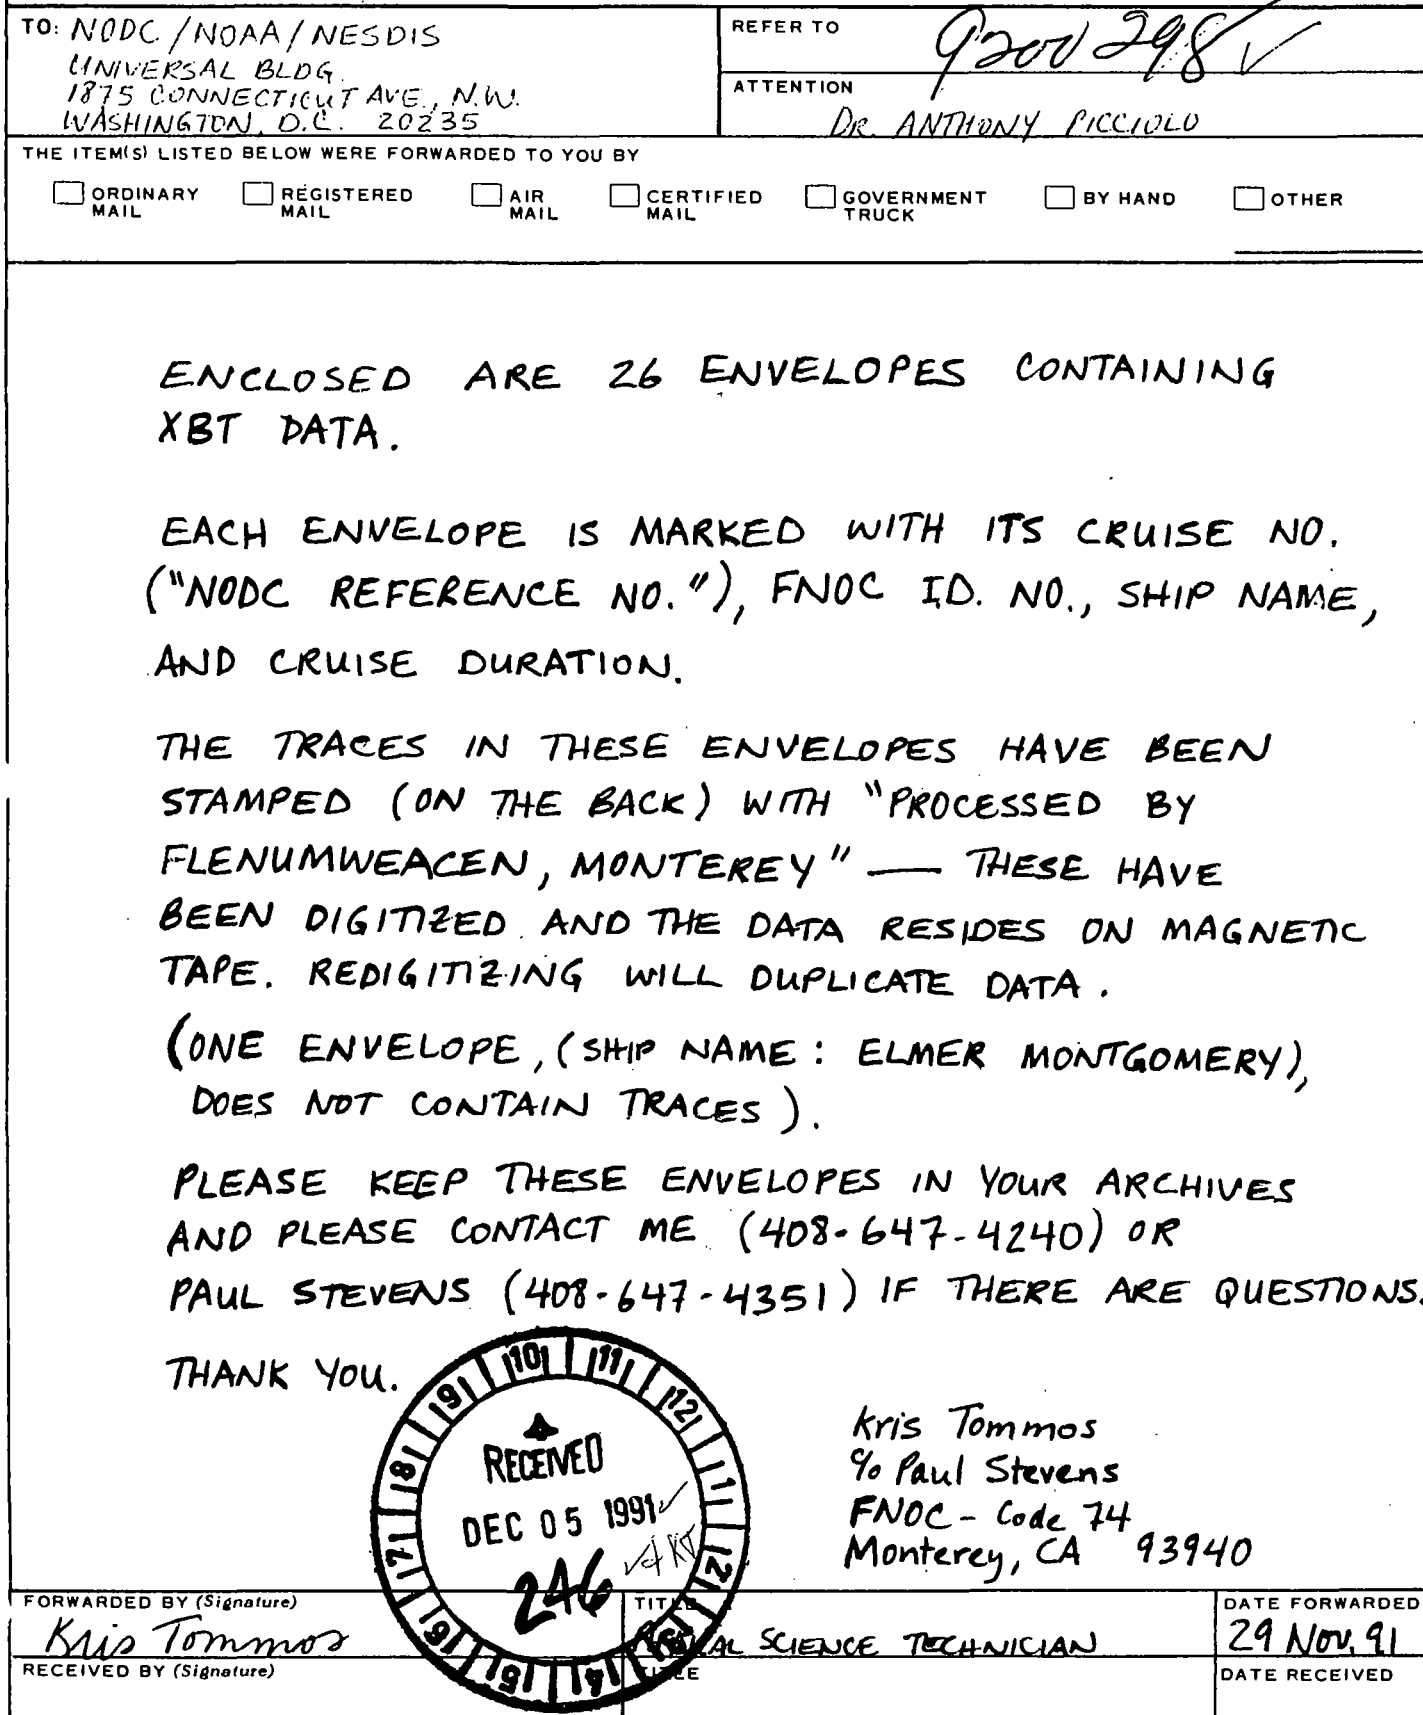 TO: NODC / NOAA / NESDIS
UNIVERSAL BLDG.
1875 CONNECTICUT AVE., N.W.
WASHINGTON, D.C. 20235
REFER TO
9200298 ✓
ATTENTION
DR. ANTHONY PICCIOLO
THE ITEM(S) LISTED BELOW WERE FORWARDED TO YOU BY
☐ ORDINARY MAIL ☐ REGISTERED MAIL ☐ AIR MAIL ☐ CERTIFIED MAIL ☐ GOVERNMENT TRUCK ☐ BY HAND ☐ OTHER
ENCLOSED ARE 26 ENVELOPES CONTAINING
XBT DATA.
EACH ENVELOPE IS MARKED WITH ITS CRUISE NO.
("NODC REFERENCE NO."), FNOC ID. NO., SHIP NAME,
AND CRUISE DURATION.
THE TRACES IN THESE ENVELOPES HAVE BEEN
STAMPED (ON THE BACK) WITH "PROCESSED BY
FLENUMWEACEN, MONTEREY" — THESE HAVE
BEEN DIGITIZED AND THE DATA RESIDES ON MAGNETIC
TAPE. REDIGITIZING WILL DUPLICATE DATA.
(ONE ENVELOPE, (SHIP NAME: ELMER MONTGOMERY),
DOES NOT CONTAIN TRACES).
PLEASE KEEP THESE ENVELOPES IN YOUR ARCHIVES
AND PLEASE CONTACT ME (408-647-4240) OR
PAUL STEVENS (408-647-4351) IF THERE ARE QUESTIONS.
THANK YOU.
10 11 12 1 2 3 4 5 6 7 8 9
RECEIVED
DEC 05 1991 ✓
246
Kris Tommos
c/o Paul Stevens
FNOC - Code 74
Monterey, CA 93940
FORWARDED BY (Signature)
Kris Tommos
TITLE
SCIENCE TECHNICIAN
DATE FORWARDED
29 NOV, 91
RECEIVED BY (Signature)
TITLE
DATE RECEIVED